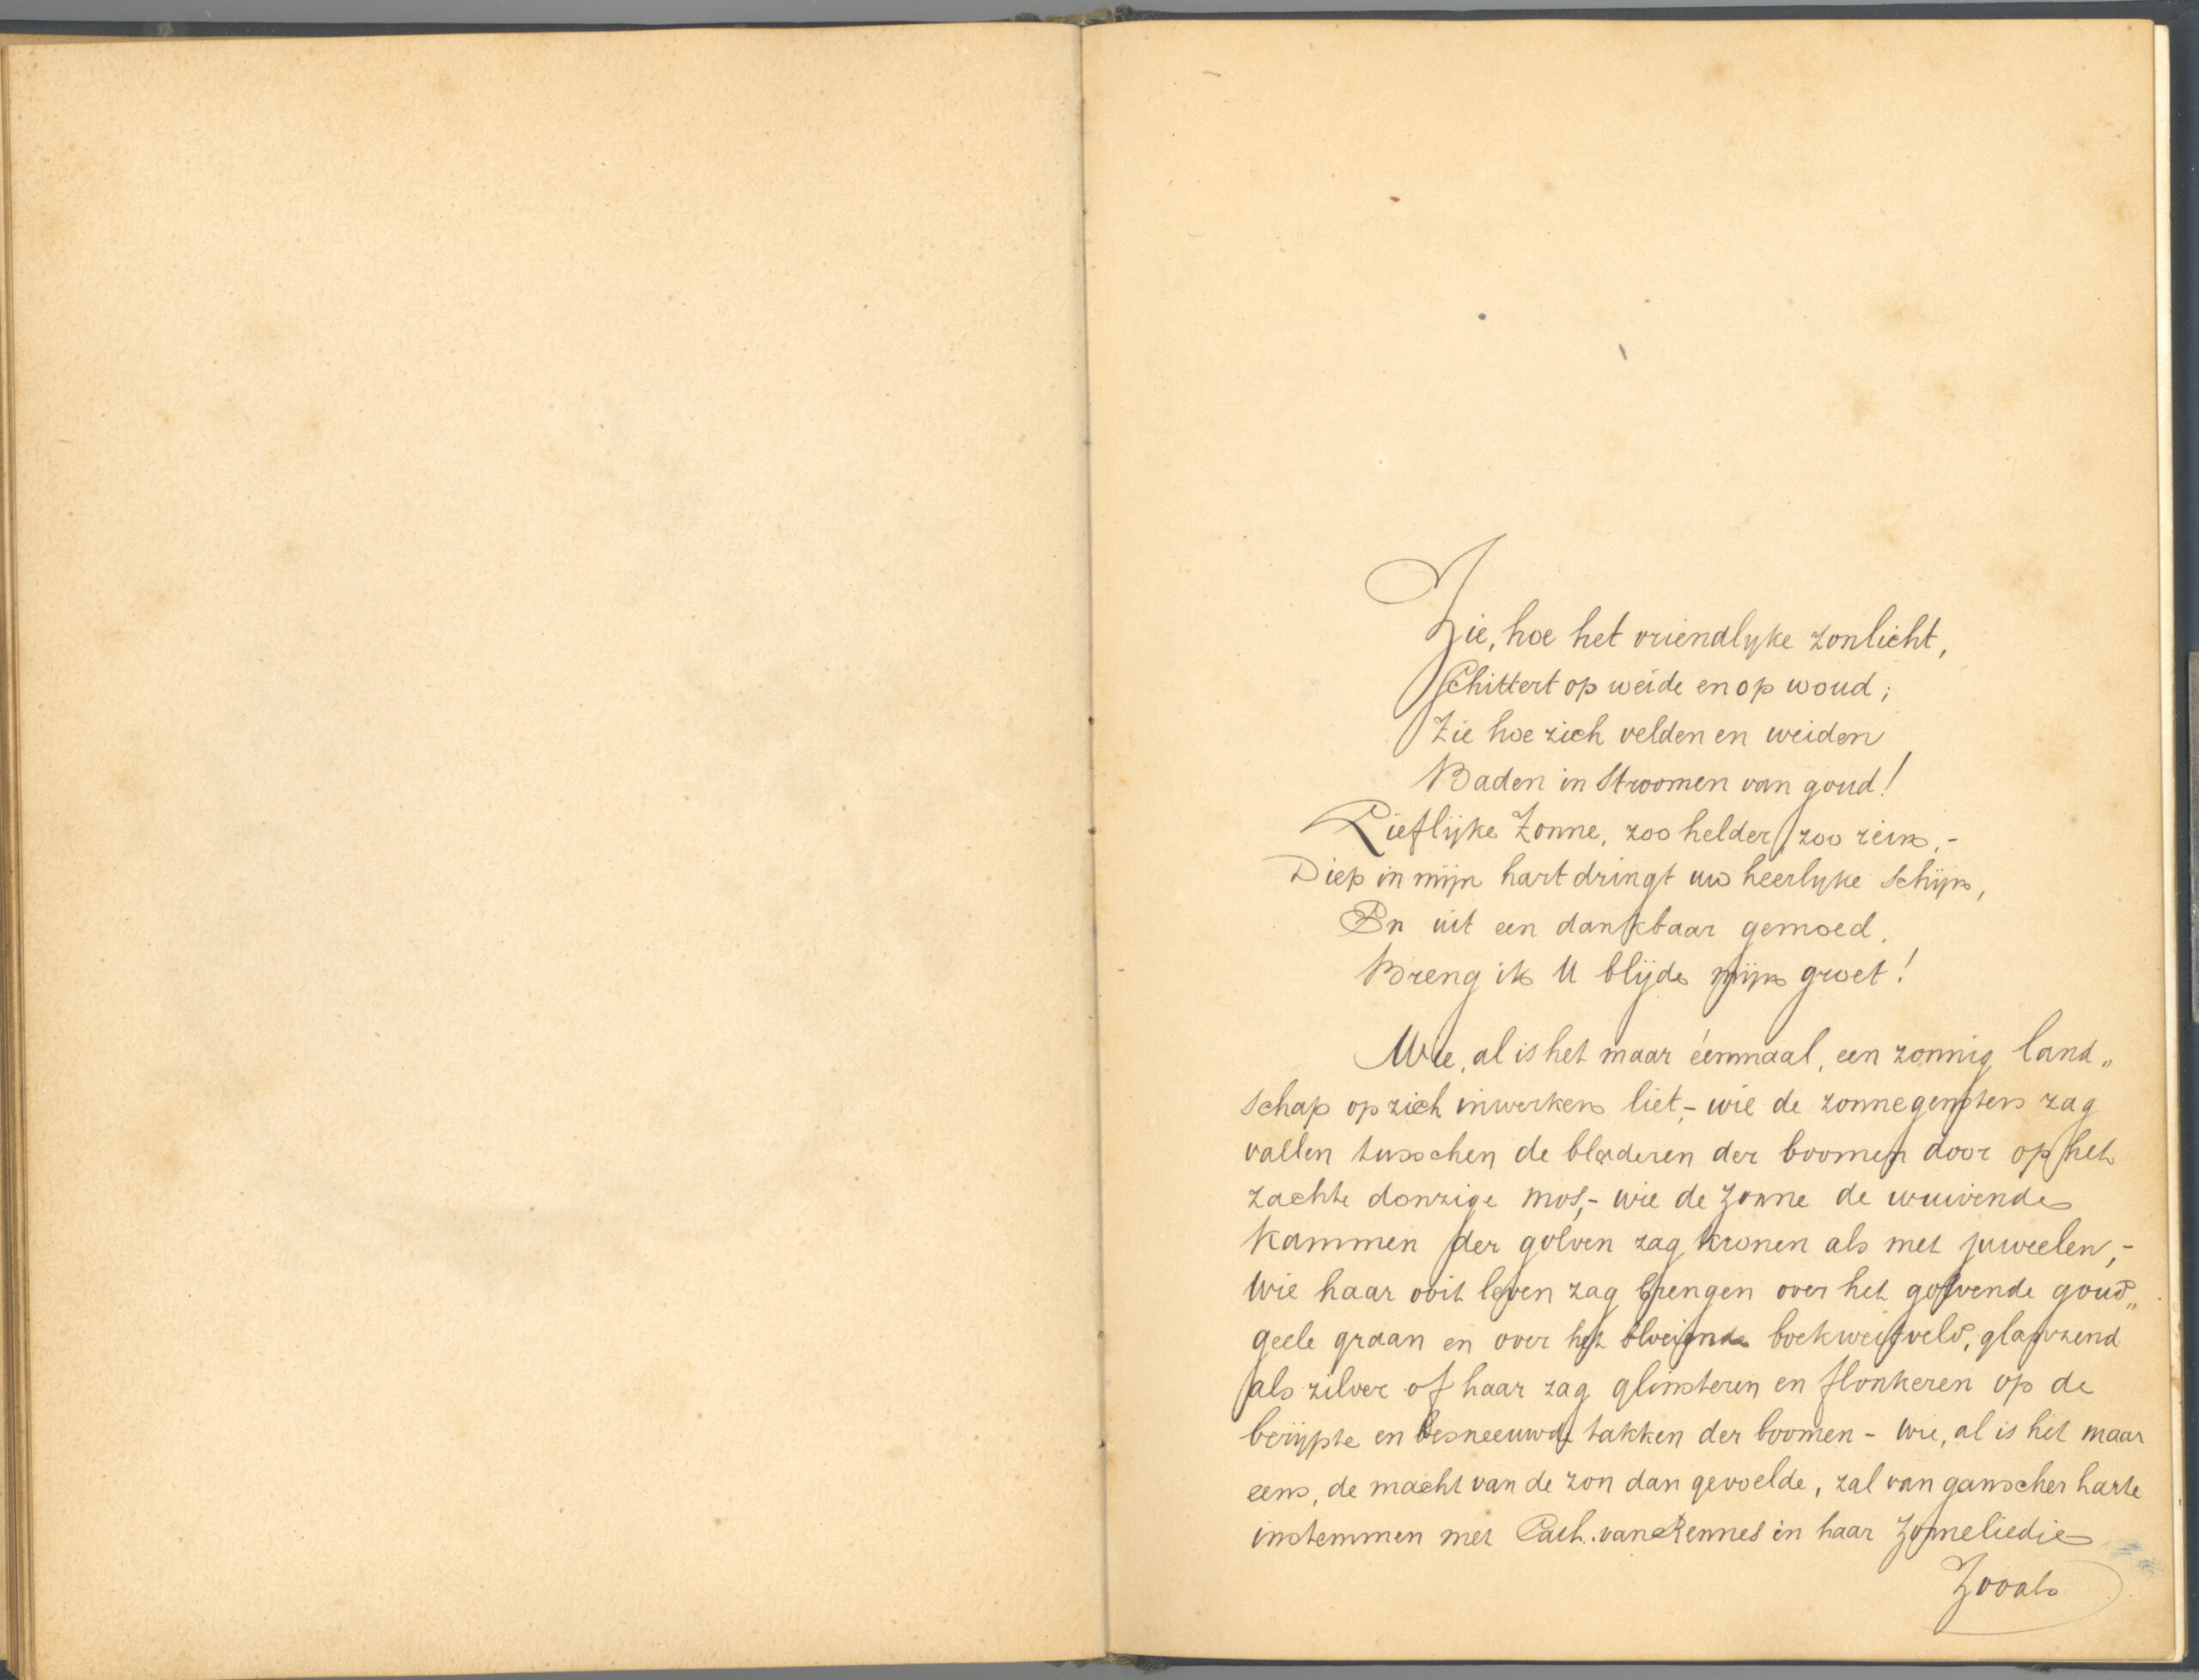 Zie, hoe het vriendlyke zonlicht,
Schittert op weide en op woud;
Zie hoe zich velden en weiden
Baden in Stroomen van goud!
Lieflijke Zonne, zoo helder, zoo rein,-
Diep in mijn hart dringt uw heerlyke Schijn,
En uit een dankbaar gemoed.
Breng ik U blijde mijn groet!
Wie, al is het maar éénmaal, een zonnig land„
schap op zich inwerken liet,- wie de zonnegensters zag
vallen tusschen de bladeren der boomen door op het
zachte donzige mos,- wie de Zonne de wuivende
kammen der golven zag kronen als met juweelen,-
Wie haar ooit leven zag brengen over het golvende goud„
geele graan en over het bloeiende boekweitveld, glanzend
als zilver of haar zag glinsteren en flonkeren op de
berijpte en besneeuwde takken der boomen - wie, al is het maar
eens, de macht van de zon dan gevoelde, zal van ganscher harte
instemmen met Cath. van Rennes in haar Zonneliedje
Zooals